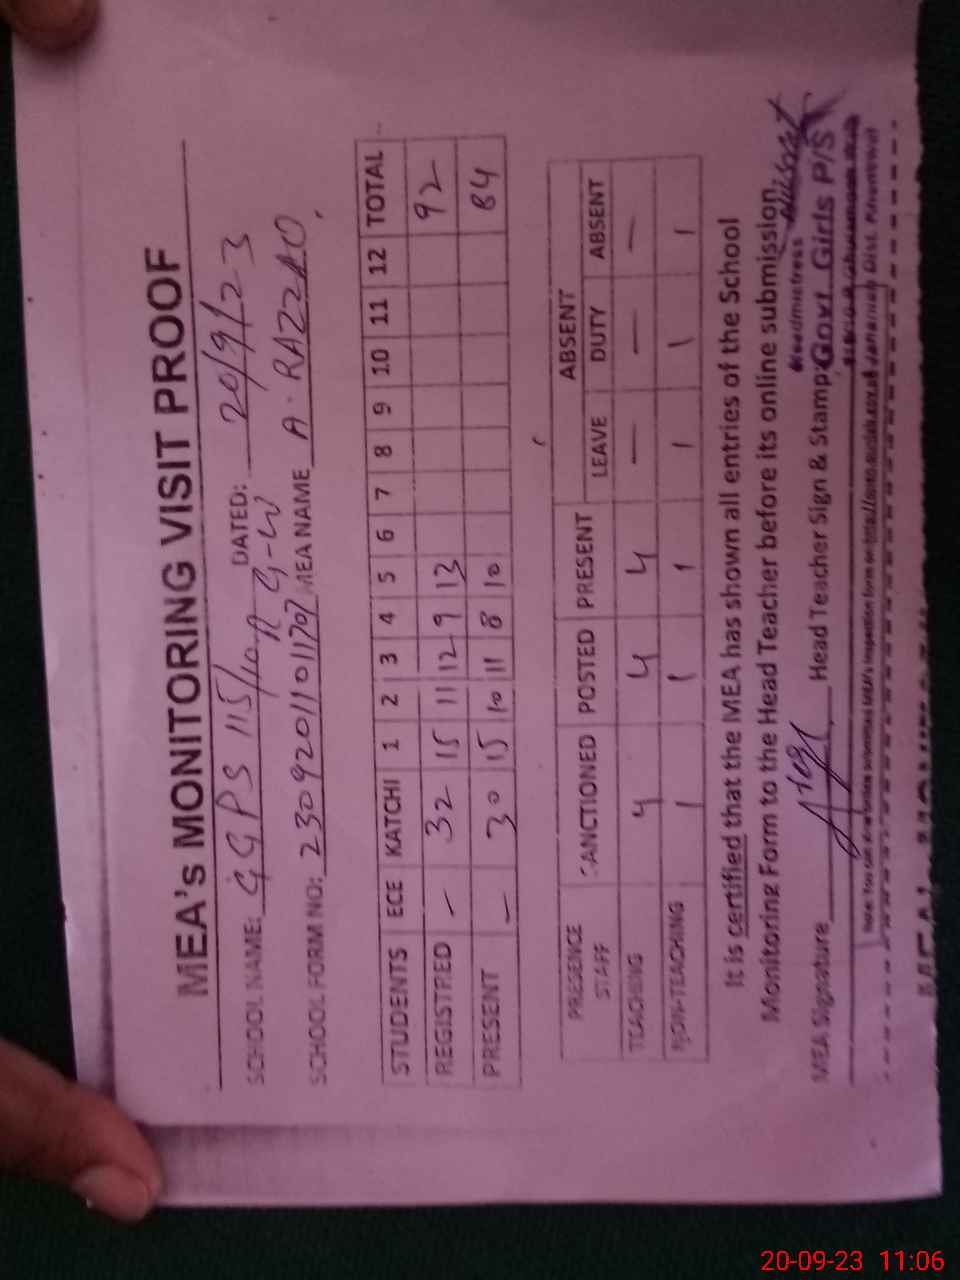 MEA's MONITORING VISIT PROOF
SCHOOL NAME: GGPS 115/10R G-W DATED: 20/9/23
SCHOOL FORM NO: MEA NAME A. RAZZAQ
STUDENTS ECE KATCHI 1 2 3 4 5 6 7 8 9 10 11 12 TOTAL
REGISTRED – 32 15 11 12 9 13 92
PRESENT – 30 15 10 11 8 10 84
PRESENCE STAFF SANCTIONED POSTED PRESENT ABSENT
LEAVE DUTY ABSENT
TEACHING 4 4 4 — — —
NON-TEACHING 1 1 1 1 1 1
It is certified that the MEA has shown all entries of the School
Monitoring Form to the Head Teacher before its online submission.
Headmistress
MEA Signature Head Teacher Sign & Stamp: Govt. Girls P/S
Jahanian Dist. Khanewal
20-09-23 11:06